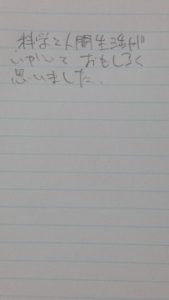 科学と人間生活が
いがいと おもしろく
思いました.